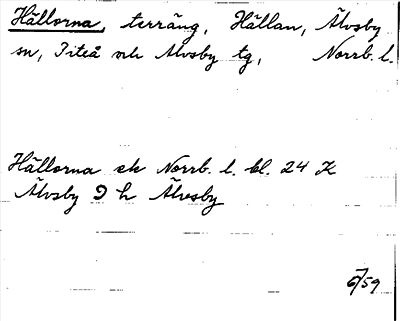 Hällorna, terräng, Hällan, Älvsby
sn, Piteå och Älvsby tg, Norrb. l.
Hällorna ek Norrb. l. bl. 24 K
Älvsby 9 h Älvesby
6/59